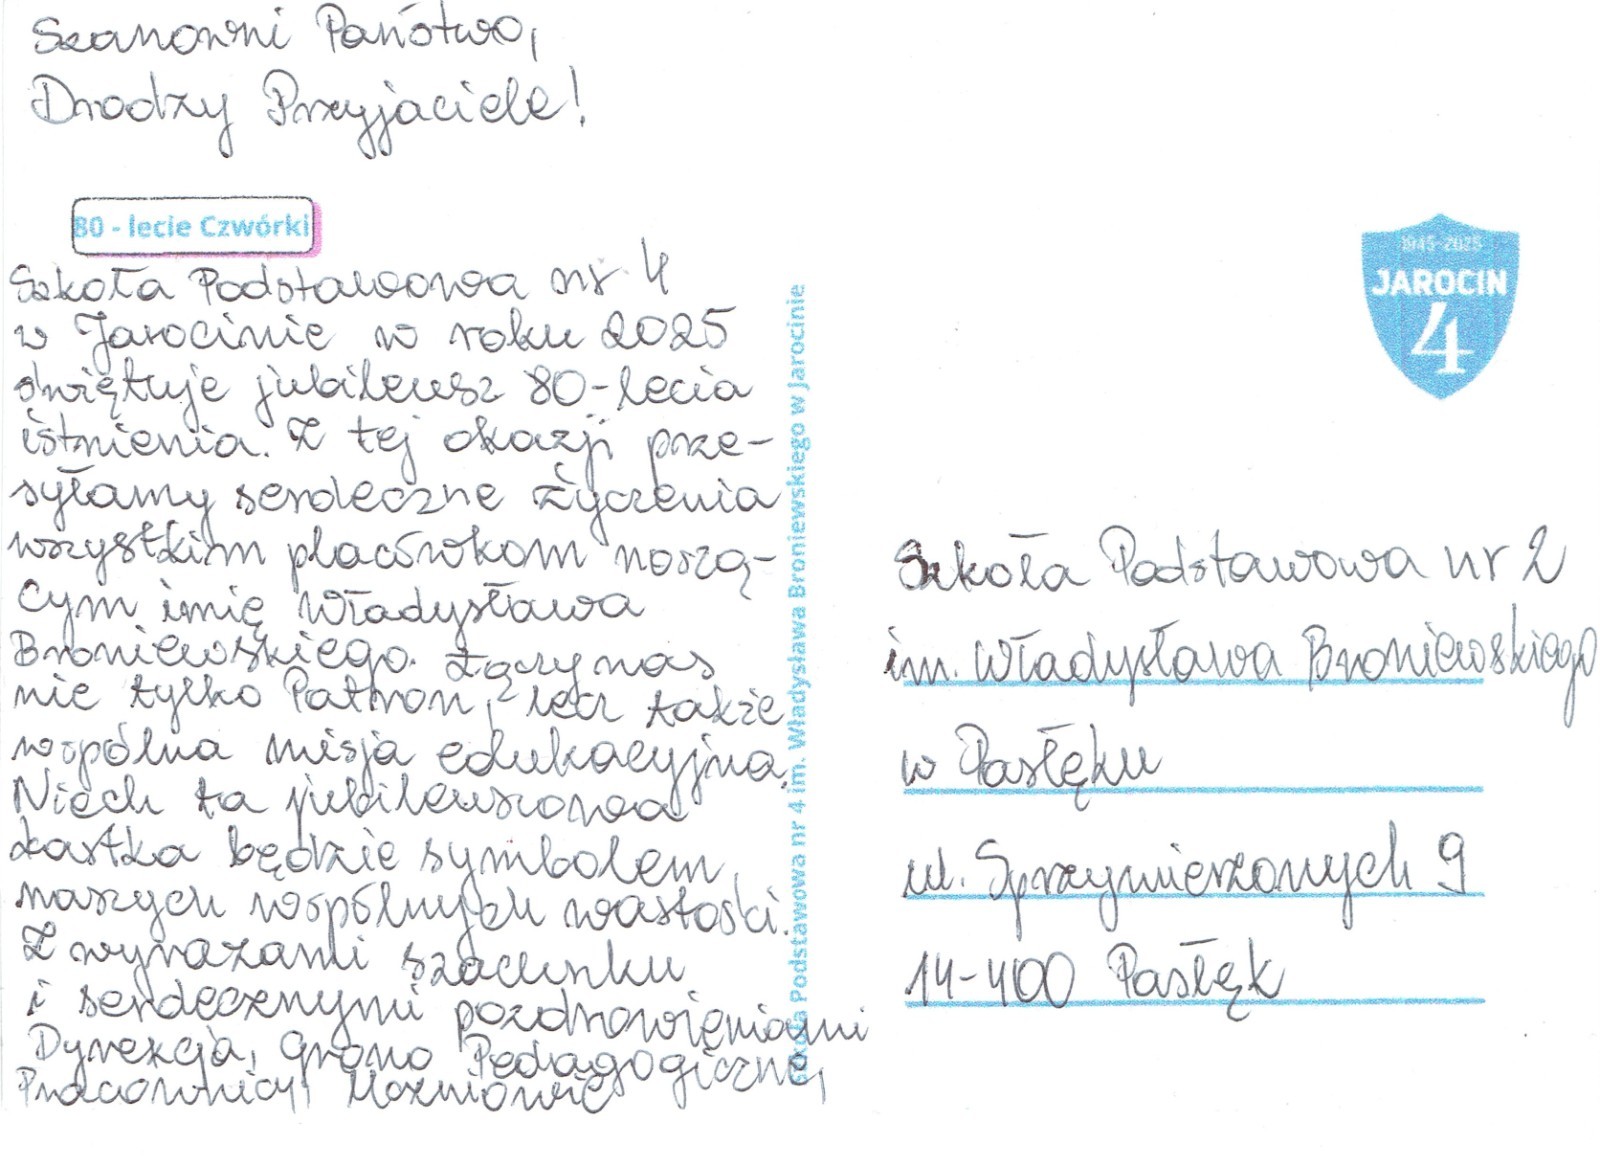 Szanowni Państwo,
Drodzy Przyjaciele!
80 - lecie Czwórki
Szkoła Podstawowa nr 4
w Jarocinie w roku 2025
świętuje jubileusz 80-lecia
istnienia. Z tej okazji prze-
syłamy serdeczne życzenia
wszystkim placówkom noszą-
cym imię Władysława
Broniewskiego. Łączy nas
nie tylko Patron, lecz także
wspólna misja edukacyjna.
Niech ta jubileuszowa
kartka będzie symbolem
naszych wspólnych wartości.
Z wyrazami szacunku
i serdecznymi pozdrowieniami
Dyrekcja, Grono Pedagogiczne,
Pracownicy, Uczniowie
Szkoła Podstawowa nr 4 im. Władysława Broniewskiego w Jarocinie
1945-2025
JAROCIN
4
Szkoła Podstawowa nr 2
im. Władysława Broniewskiego
w Pasłęku
ul. Sprzymierzonych 9
14-400 Pasłęk